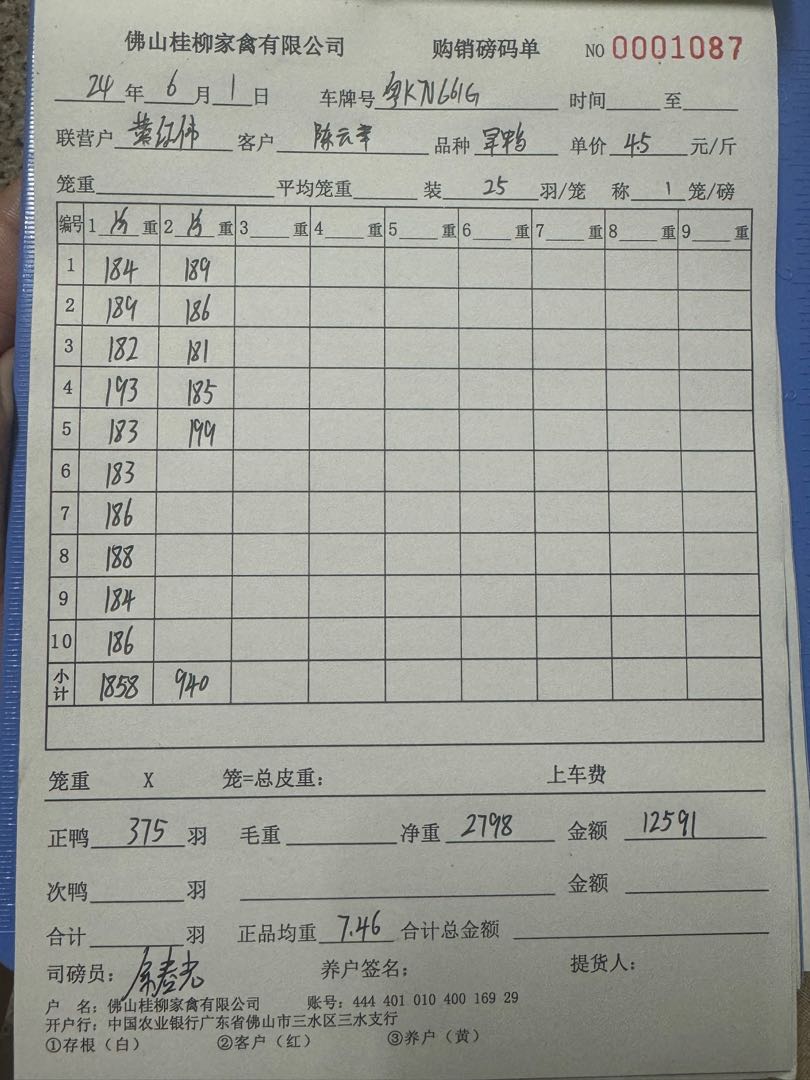 佛山桂柳家禽有限公司 购销磅码单 NO 0001087
24 年 6 月 1 日 车牌号 粤KN661G 时间 至
联营户 黄红伟 客户 陈云 品种 旱鸭 单价 4.5 元/斤
笼重 平均笼重 装 25 羽/笼 称 1 笼/磅
编号 1 重 2 重 3 重 4 重 5 重 6 重 7 重 8 重 9 重
1 184 189
2 189 186
3 182 181
4 193 185
5 183 199
6 183
7 186
8 188
9 184
10 186
小计 1858 940
笼重 X 笼=总皮重: 上车费
正鸭 375 羽 毛重 净重 2798 金额 12591
次鸭 羽 金额
合计 羽 正品均重 7.46 合计总金额
司磅员: 养户签名: 提货人:
户 名: 佛山桂柳家禽有限公司 账号: 444 401 010 400 169 29
开户行: 中国农业银行广东省佛山市三水区三水支行
①存根(白) ②客户(红) ③养户(黄)